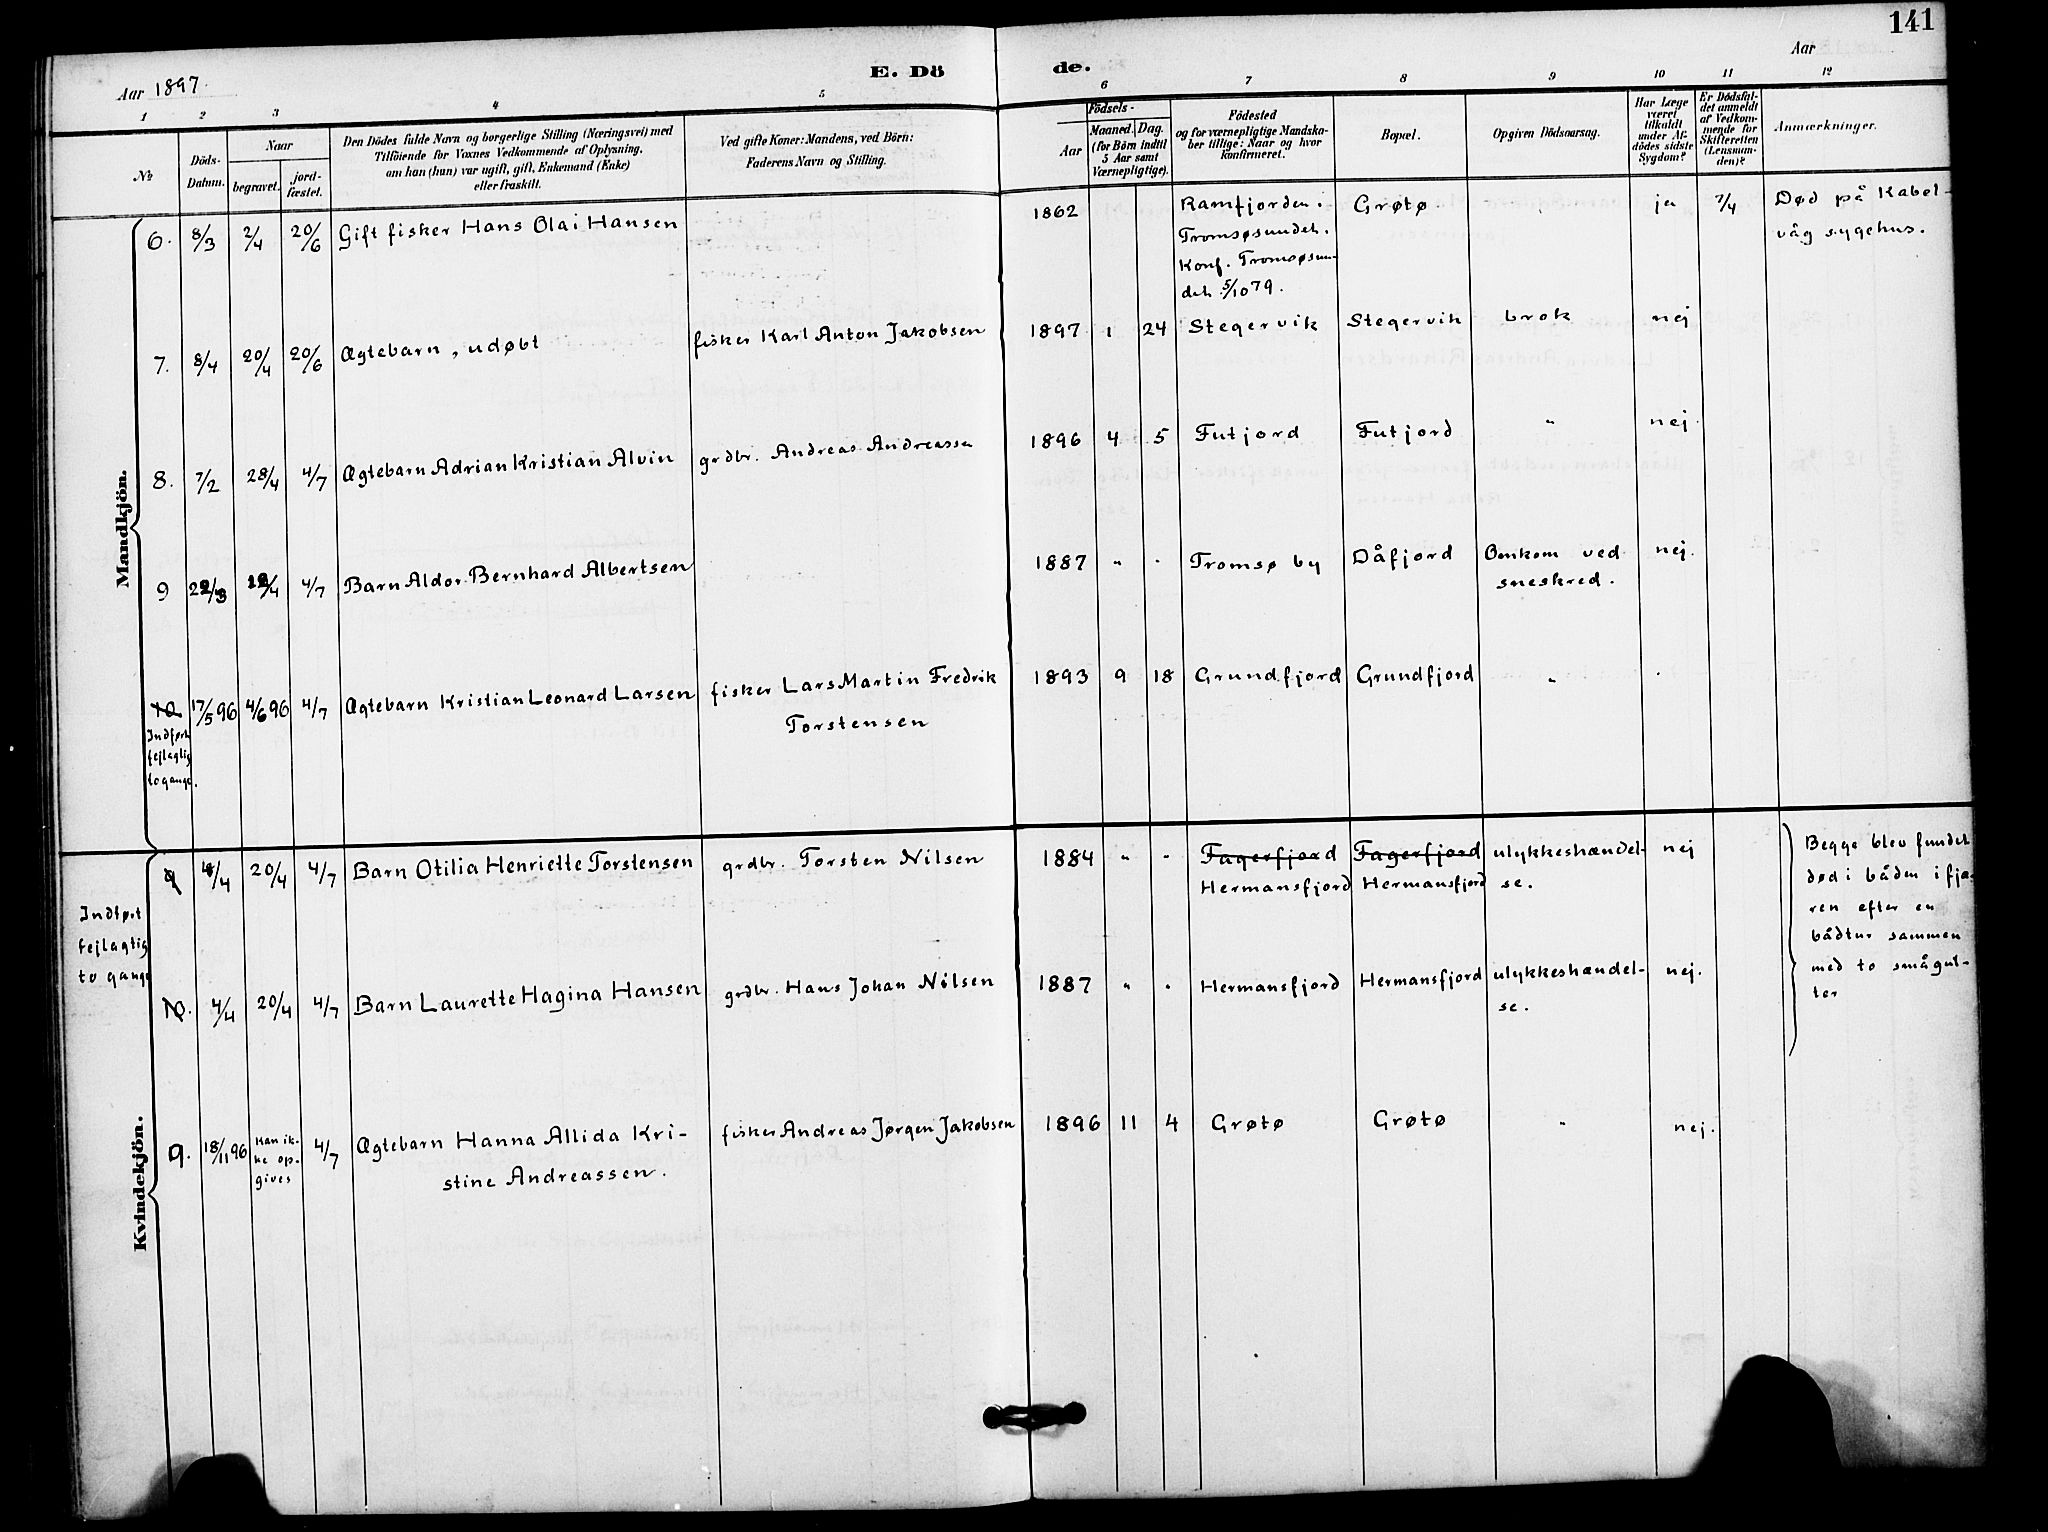 141
Aar 1897.
E. Dö
de.
Aar
1 2 3 4 5 6 7 8 9 10 11 12
No
Döds-
Datum.
Naar
begravet.
jord-
fæstet.
Den Dödes fulde Navn og borgerlige Stilling (Næringsvei) med
Tilföiende for Voxnes Vedkommende af Oplysning,
om han (hun) var ugift, gift, Enkemand (Enke)
eller fraskilt.
Ved gifte Koner: Mandens, ved Börn:
Faderens Navn og Stilling.
Födsels-
Aar
Maaned. Dag.
(for Börn indtil
5 Aar samt
Værnepligtige).
Födested
og for værnepligtige Mandska-
ber tillige: Naar og hvor
konfirmeret.
Bopæl.
Opgiven Dödsaarsag.
Har Læge
været
tilkaldt
under Af-
dödes sidste
Sygdom?
Er Dödsfal-
det anmeldt
af Vedkom-
mende for
Skifteretten
(Lensman-
den)?
Anmærkninger.
Mandkjön.
6. 8/3 2/4 20/6 Gift fisker Hans Olai Hansen 1862 Ramfjorden i Grøtø " ja 7/4 Død på Kabel-
Tromsøsundet. våg sygehus.
Konf. Tromsøsun-
det 5/10 79.
7. 8/4 20/4 20/6 Ægtebarn, udøbt fisker Karl Anton Jakobsen 1897 1 24 Stegervik Stegervik brok nej
8. 7/2 28/4 4/7 Ægtebarn Adrian Kristian Alvin grdbr. Andreas Andreassen 1896 4 5 Futjord Futjord " nej.
9 22/3 12/4 4/7 Barn Aldor Bernhard Albertsen 1887 " " Tromsø by Dåfjord Omkom ved nej.
sneskred.
10. 17/5 96 4/6 96 4/7 Ægtebarn Kristian Leonard Larsen fisker Lars Martin Fredrik 1893 9 18 Grundfjord Grundfjord "
Torstensen
Indført
fejlagtig
to gange.
Kvindekjön.
9 4/4 20/4 4/7 Barn Otilia Henriette Torstensen grdbr. Torsten Nilsen 1884 " " Fagerfjord Fagerfjord ulykkeshændel- nej Begge blev fundet
Hermansfjord Hermansfjord se. død i båden i fjæ-
Indført ren efter en
fejlagtig bådtur sammen
to gange med to smågut-
10. 4/4 20/4 4/7 Barn Laurette Hagina Hansen grdbr. Hans Johan Nilsen 1887 " " Hermansfjord Hermansfjord ulykkeshændel- nej. ter
se.
9. 18/11 96 Kan ik- 4/7 Ægtebarn Hanna Allida Kri- fisker Andreas Jørgen Jakobsen 1896 11 4 Grøtø Grøtø " nej.
ke op-
gives stine Andreassen.